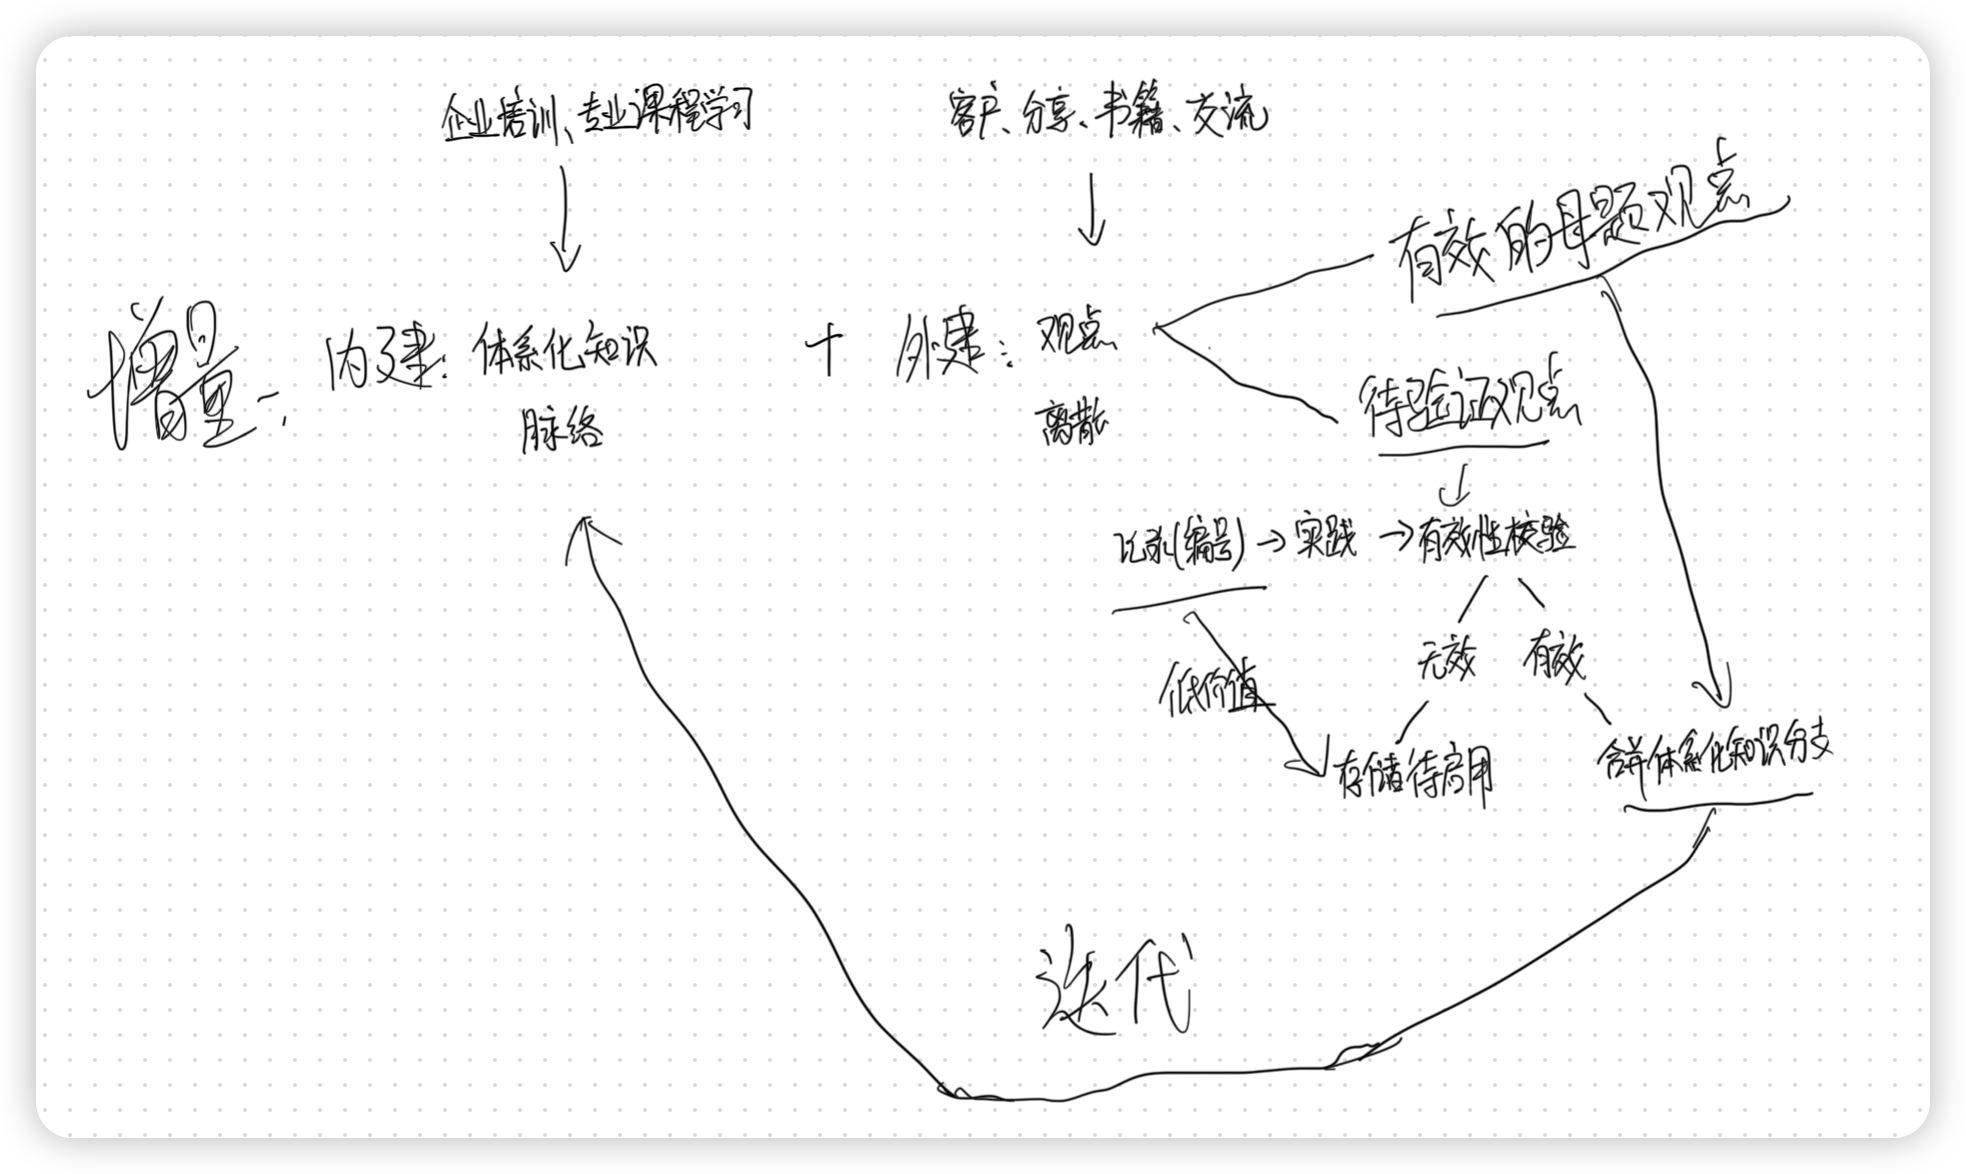 企业培训、专业课程学习
客户、分享、书籍、交流
增量：
内建：体系化知识
脉络
+
外建：观点
离散
有效的母题观点
待验证观点
记录(编号)→实践→有效性校验
低价值
无效
有效
存储待启用
合并体系化知识分支
迭代